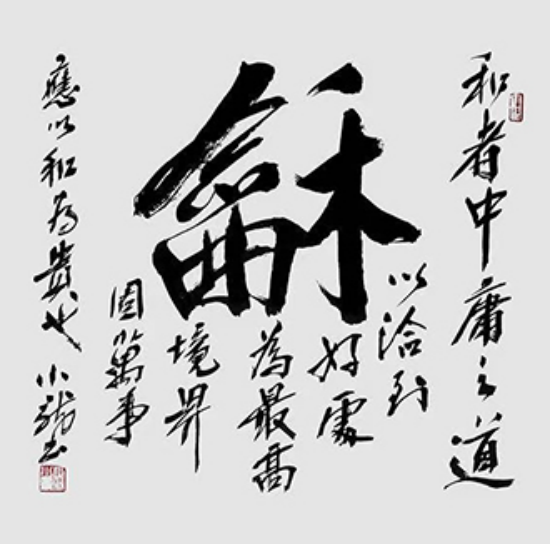 龢
和者中庸之道
以洽到
好處
為最高
境界
因萬事
應以和為貴也